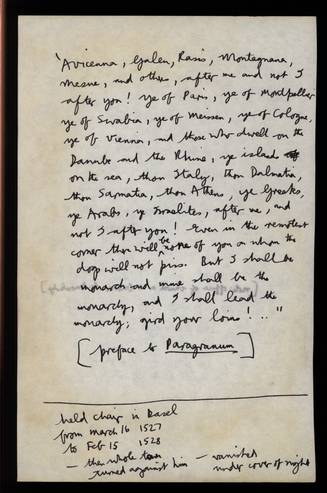 "Avicenna, Galen, Rasis, Montagnana,
Mesue, and others, after me and not I
after you! Ye of Paris, ye of Montpellier
ye of Swabia, ye of Meissen, ye of Cologne,
ye of Vienna, and those who dwell on the
Danube and the Rhine, ye islands
on the sea, thou Italy, thou Dalmatia,
thou Sarmatia, thou Athens, ye Greeks,
ye Arabs, ye Israelites, after me, and
not I after you! Even in the remotest
corner there will be none of you on whom the
dogs will not piss. But I shall be
monarch and mine shall be the
monarchy, and I shall lead the
monarchy; gird your loins! . . "
[preface to Paragranum]
held chair in Basel
from march 16 1527
to Feb 15 1528
– then whole town turned against him – vanished
under cover of night